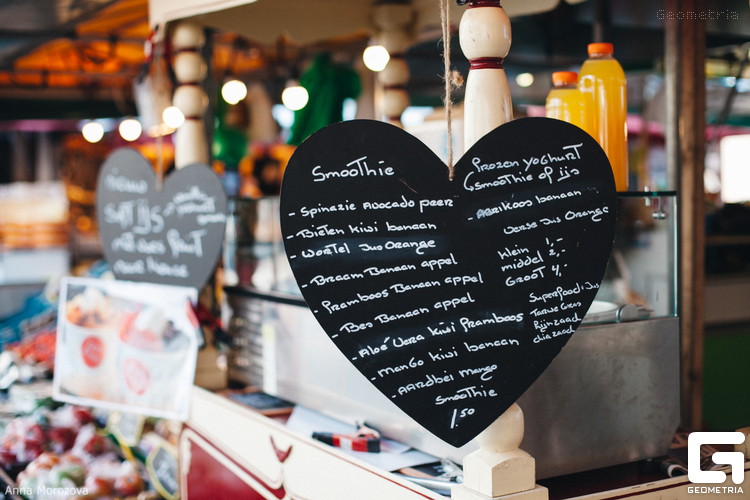 Geometria
Smoothie
- Spinazie Avocado peer
- Bieten kiwi banaan
- Wortel Jus Orange
- Braam Banaan appel
- Framboos Banaan appel
- Bes Banaan appel
- Aloë Vera kiwi Framboos
- Mango kiwi banaan
- Aardbei mango
Smoothie
1.50
Frozen Yoghurt
Smoothie of ijs
- Abrikoos banaan
Verse Jus Orange
klein 1,-
middel 2,-
Groot 4,-
Superfood: Jus
Tarwe Gras
lijnzaad
chia zaad
nieuw
Softijs
met vers fruit
Anna Morozova
G
GEOMETRIA